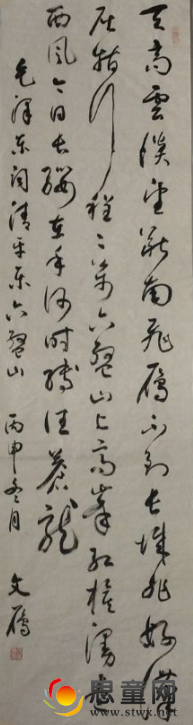 天高雲淡望斷南飛雁不到長城非好漢
屈指行程二萬六盤山上高峯紅旗漫卷
西風今日長纓在手何時縛住蒼龍
毛澤東詞清平樂六盤山 丙申冬月 文雁
思童网
www.stwx.net